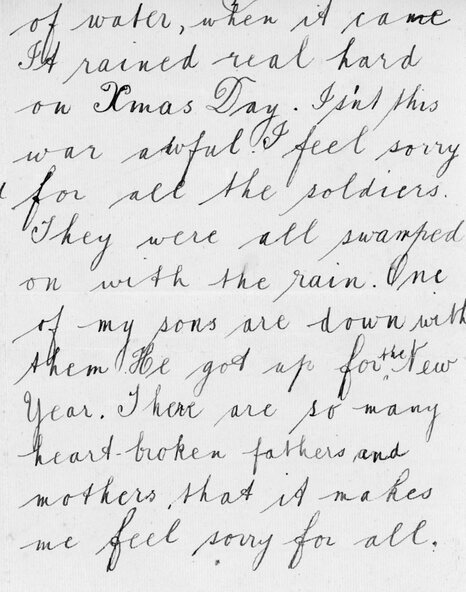 of water, when it came
It rained real hard
on Xmas Day. Isn't this
war awful. I feel sorry
for all the soldiers.
They were all swamped
on with the rain. One
of my sons are down with
them He got up for the New
Year. There are so many
heart-broken fathers and
mothers, that it makes
me feel sorry for all.